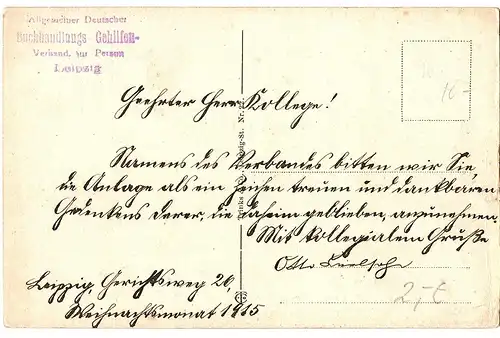 Allgemeiner Deutscher
Buchhandlungs Gehilfen-
Verband, zur Person
Leipzig
Geehrter Herr Kollege!
Namens des Verbandes bitten wir Sie,
die Anlage als ein Zeichen treuen und dankbaren
Gedenkens derer, die daheim geblieben, anzunehmen.
Mit kollegialem Gruße
Otto
Leipzig, Gerichtsweg 26,
Weihnachtsmonat 1915
2,- €